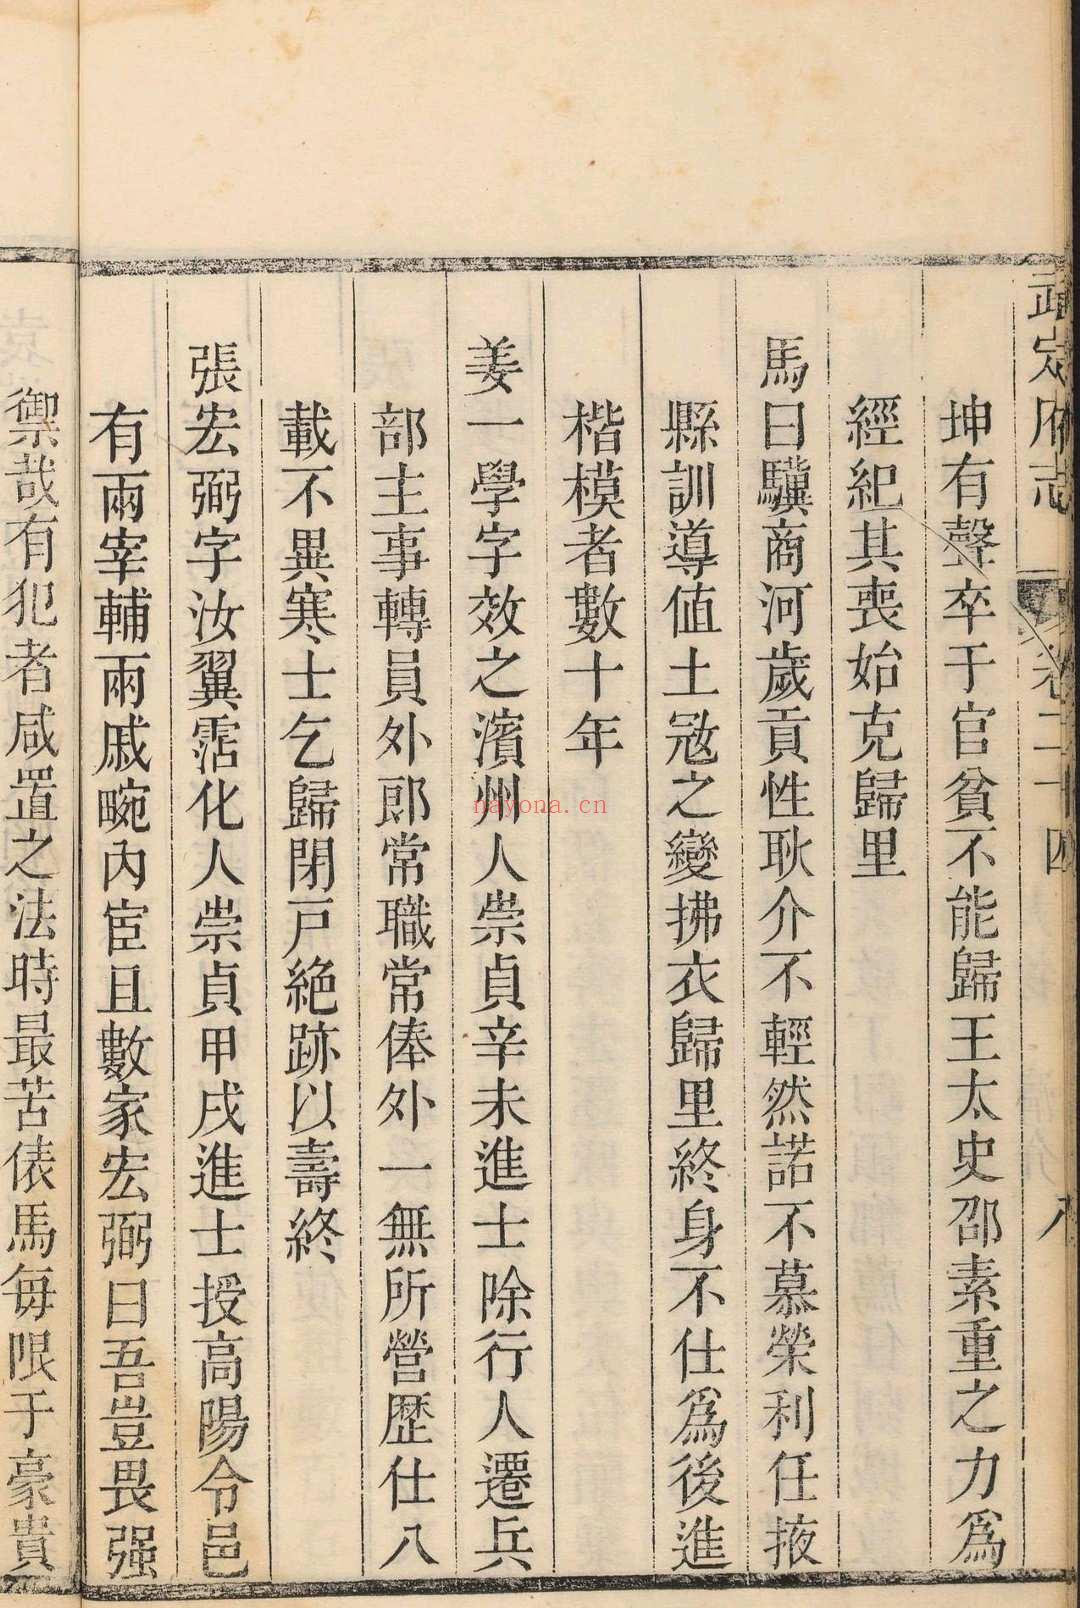 武定府志
卷二十四
八
坤有聲卒于官貧不能歸王太史邵素重之力爲
經紀其喪始克歸里
馬曰驥商河歲貢性耿介不輕然諾不慕榮利任掖
縣訓導值土㓂之變拂衣歸里終身不仕爲後進
楷模者數十年
姜一學字效之濱州人崇貞辛未進士除行人遷兵
部主事轉員外郎常職常俸外一無所營歷仕八
載不異寒士乞歸閉戸絶跡以壽終
張宏弼字汝翼霑化人崇貞甲戌進士授高陽令邑
有兩宰輔兩戚畹內宦且數家宏弼曰吾豈畏强
禦哉有犯者咸置之法時最苦俵馬每限于豪貴
nayona.cn